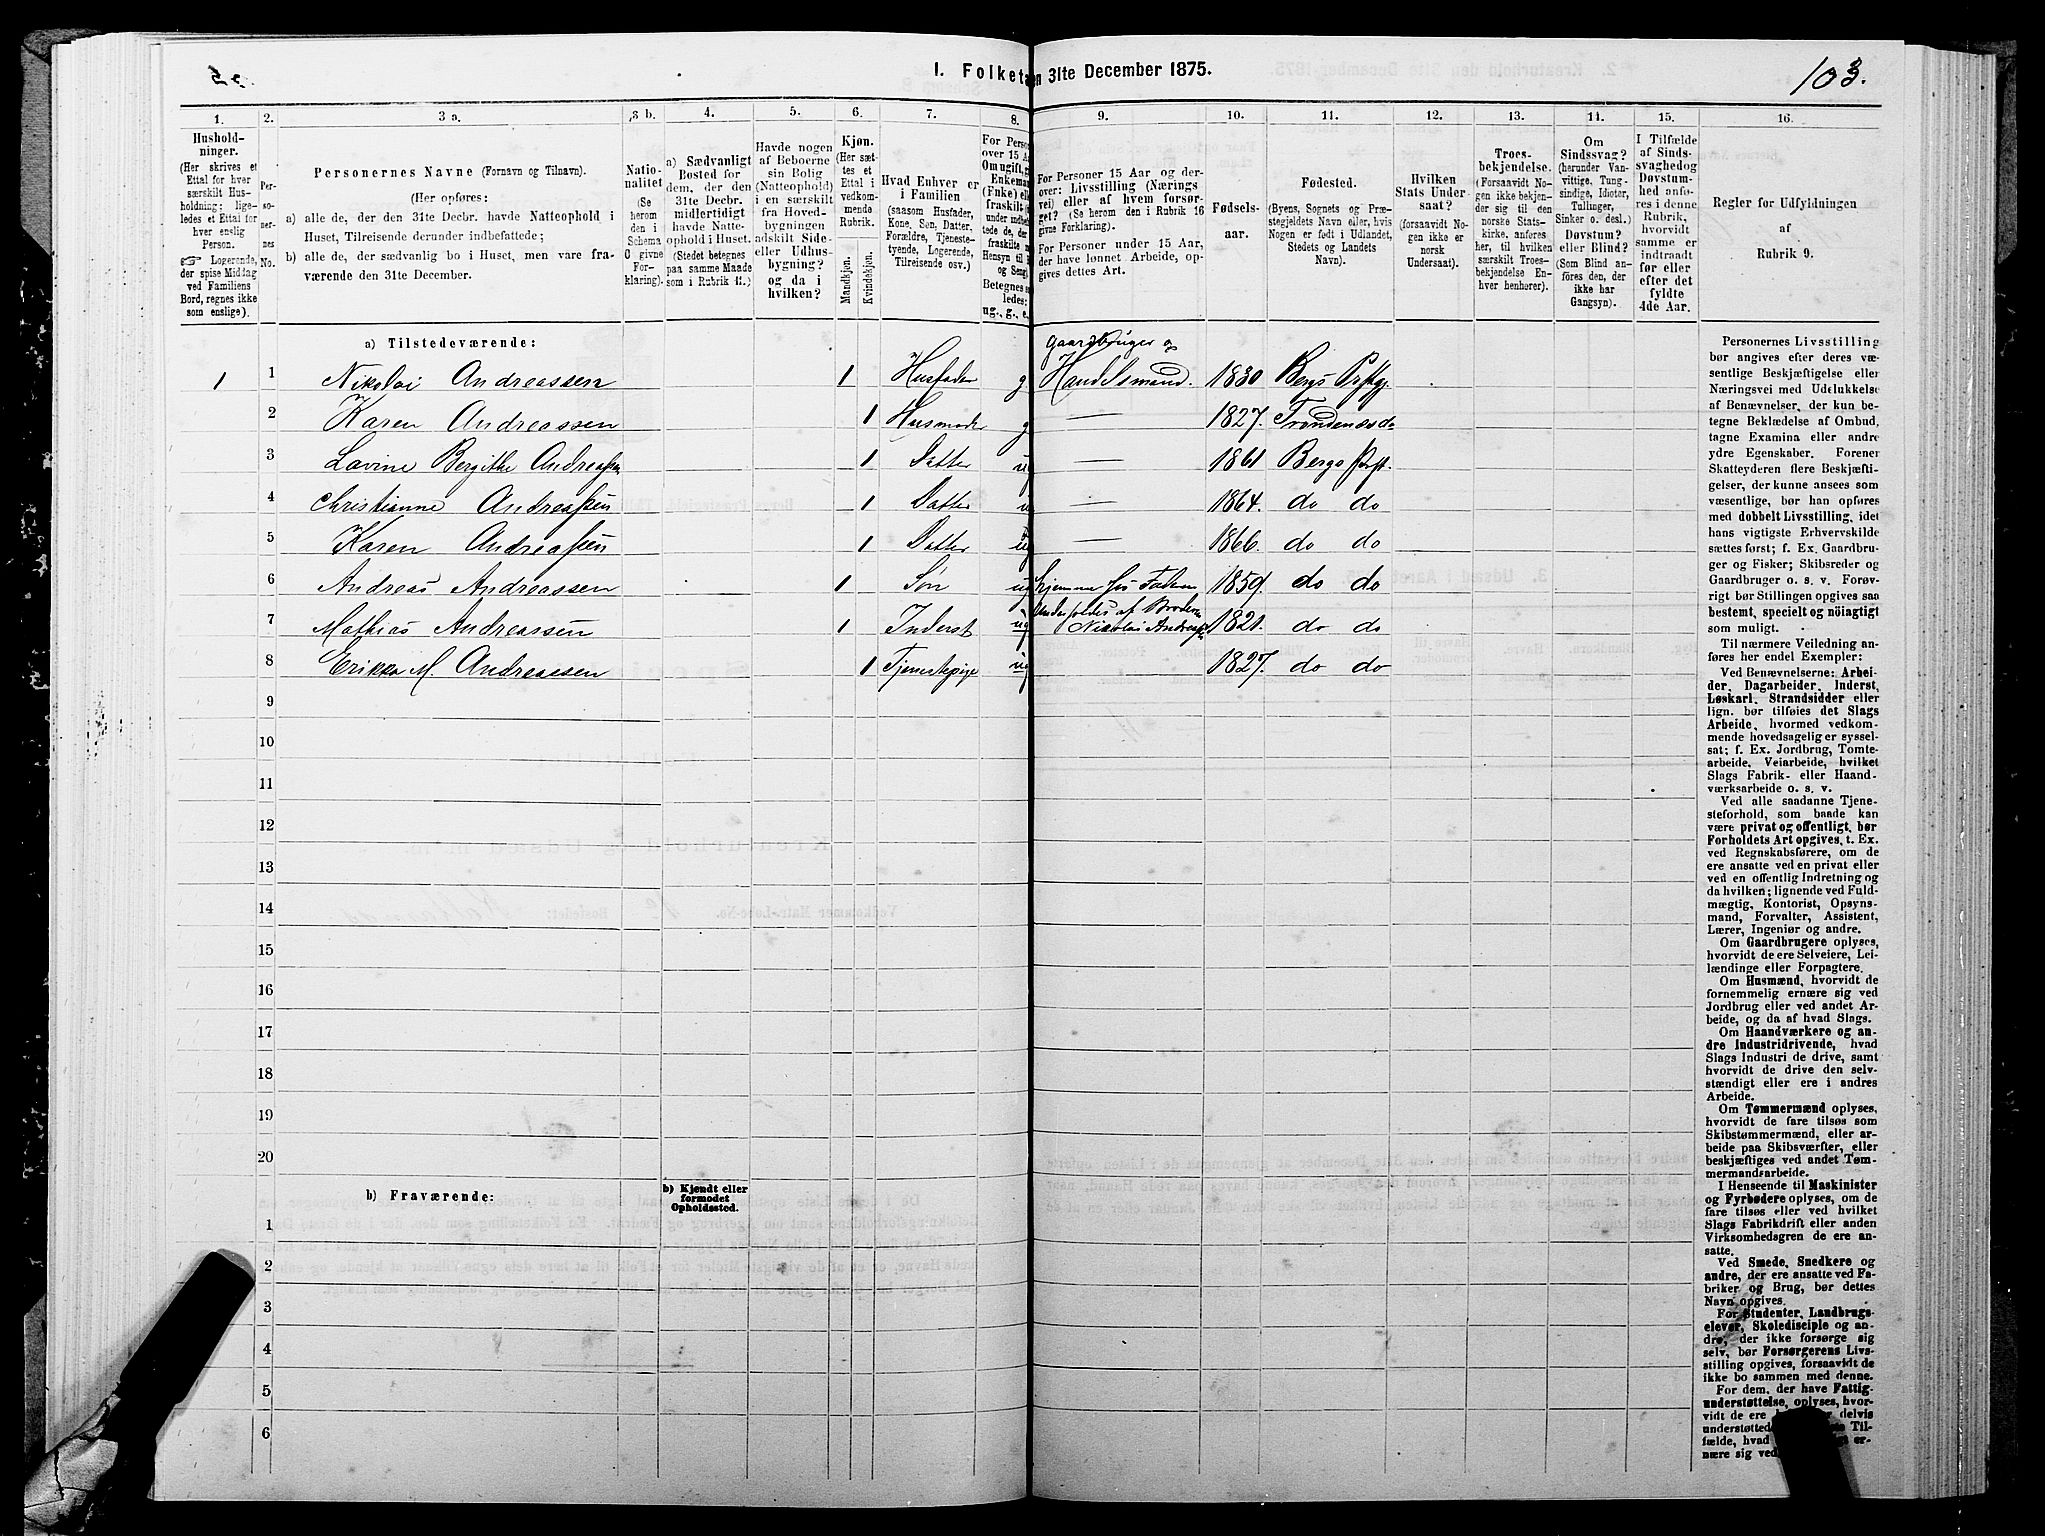 1. Folketæ n 31te December 1875.
103.
1.
Hushold-
ninger.
(Her skrives et
Ettal for hver
særskilt Hus-
holdning; lige-
ledes et Ettal for
hver enslig
Person.
☞ Logerende,
der spise Middag
ved Familiens
Bord, regnes ikke
som enslige).
2.
Per-
so-
ner-
nes
No.
3 a.
Personernes Navne (Fornavn og Tilnavn).
(Her opføres:
a) alle de, der den 31te Decbr. havde Natteophold i
Huset, Tilreisende derunder indbefattede;
b) alle de, der sædvanlig bo i Huset, men vare fra-
værende den 31te December.
3 b.
Natio-
nalitet
(Se
herom
den i
Schema
O givne
For-
klaring).
4.
a) Sædvanligt
Bosted for
dem, der den
31te Decbr.
midlertidigt
havde Natte-
ophold i Huset.
(Stedet betegnes
paa samme Maade
som i Rubrik 11.)
5.
Havde nogen
af Beboerne
sin Bolig
(Natteophold)
i en særskilt
fra Hoved-
bygningen
adskilt Side-
eller Udhus-
bygning?
og da i
hvilken?
6.
Kjøn.
(Her sæt-
tes et
Ettal i
vedkom-
mende
Rubrik.
Mandkjøn.
Kvindekjøn.
7.
Hvad Enhver er
i Familien
(saasom Husfader,
Kone, Søn, Datter,
Forældre, Tjeneste-
tyende, Logerende,
Tilreisende osv.)
8.
For Person
over 15 Aa
Om ugift, g
Enkema
(Fnke) el
fraskilt
under indbe
tede de, de
fraskilte
Hensyn til
og Seng
Betegnes s
ledes:
ug., g., e.
9.
For Personer 15 Aar og der-
over: Livsstilling (Nærings
vei) eller af hvem forsør-
get? (Se herom den i Rubrik 16
givne Forklaring).
For Personer under 15 Aar,
der have lønnet Arbeide, op-
gives dettes Art.
10.
Fødsels-
aar.
11.
Fødested.
(Byens, Sognets og Præ-
stegjeldets Navn eller, hvis
Nogen er født i Udlandet,
Stedets og Landets
Navn).
12.
Hvilken
Stats Under-
saat?
(forsaavidt No-
gen ikke er
norsk
Undersaat).
13.
Troes-
bekjendelse.
(Forsaavidt No-
gen ikke bekjen-
der sig til den
norske Stats-
kirke, anføres
her, til hvilken
særskilt Troes-
bekjendelse En-
hver henhører).
14.
Om
Sindssvag?
(herunder Van-
vittige, Tung-
sindige, Idioter,
Tullinger,
Sinker o. desl.)
Døvstum?
eller Blind?
(Som Blind an-
føres den, der
ikke har
Gangsyn).
15.
I Tilfælde
af Sinds-
svaghed og
Døvstum-
hed anfø-
res i denne
Rubrik,
hvorvidt
samme er
indtraadt
før eller
efter det
fyldte
4de Aar.
16.
Regler for Udfyldningen
af
Rubrik 9.
a) Tilstedeværende:
1 1 Nikolai Andreassen 1 Husfader g Gaardbruger og Handelsmand. 1830 Bergs Prstgj.
2 Karen Andreassen 1 Husmoder g — 1827. Trondenæs do
3 Lavine Bergithe Andreassen 1 Datter ug — 1861 Bergs Prst.
4 Christianne Andreassen 1 Datter u — 1864. do do
5 Karen Andreassen 1 Datter ug 1866. do do
6 Andreas Andreassen 1 Søn ug hjemme hos Faderen 1859. do do
7 Mathias Andreassen 1 Inderst ug Underholdes af Broderen Nicolai Andreas 1821. do do
8 Erikka M. Andreassen 1 Tjenestepige ug 1827. do do
9
10
11
12
13
14
15
16
17
18
19
20
b) Fraværende:
b) Kjendt eller
formodet
Opholdssted.
1
2
3
4
5
6
Personernes Livsstilling
bør angives efter deres væ-
sentlige Beskjæftigelse eller
Næringsvei med Udelukkelse
af Benævnelser, der kun be-
tegne Beklædelse af Ombud,
tagne Examina eller andre
ydre Egenskaber. Forener
Skatteyderen flere Beskjæfti-
gelser, der kunne ansees som
væsentlige, bør han opføres
med dobbelt Livsstilling, idet
hans vigtigste Erhvervskilde
sættes først; f. Ex. Gaardbru-
ger og Fisker; Skibsreder og
Gaardbruger o. s. v. Forøv-
rigt bør Stillingen opgives saa
bestemt, specielt og nöiagtigt
som muligt.
Til nærmere Veiledning an-
føres her endel Exempler:
Ved Benævnelserne: Arbei-
der, Dagarbeider, Inderst,
Løskarl, Strandsidder eller
lign. bør tilføies det Slags
Arbeide, hvormed vedkom-
mende hovedsagelig er syssel-
sat; f. Ex. Jordbrug, Tomte-
arbeide, Veiarbeide, hvilket
Slags Fabrik- eller Haand-
værksarbeide o. s. v.
Ved alle saadanne Tjene-
steforhold, som baade kan
være privat og offentligt, bør
Forholdets Art opgives, t. Ex.
ved Regnskabsførere, om de
ere ansatte ved en privat eller
ved en offentlig Indretning og
da hvilken; lignende ved Fuld-
mægtig, Kontorist, Opsyns-
mand, Forvalter, Assistent,
Lærer, Ingeniør og andre.
Om Gaardbrugere oplyses,
hvorvidt de ere Selveiere, Lei-
lændinge eller Forpagtere.
Om Husmænd, hvorvidt de
fornemmelig ernære sig ved
Jordbrug eller ved andet Ar-
beide, og da af hvad Slags.
Om Haandværkere og an-
dre Industridrivende, hvad
Slags Industri de drive, samt
hvorvidt de drive den selv-
stændigt eller ere i andres
Arbeide.
Om Tømmermænd oplyses,
hvorvidt de fare tilsøs som
Skibstømmermænd, eller ar-
beide paa Skibsværfter, eller
beskjæftiges ved andet Tøm-
mermandsarbeide.
I Henseende til Maskinister
og Fyrbødere oplyses, om de
fare tilsøs eller ved hvilket
Slags Fabrikdrift eller anden
Virksomhedsgren de ere an-
satte.
Ved Smede, Snedkere og
andre, der ere ansatte ved Fa-
briker og Brug, bør dettes
Navn opgives.
For Studenter, Landbrugs-
elever, Skoledisciple og an-
dre, der ikke forsørge sig
selv, bør Forsørgerens Livs-
stilling opgives, forsaavidt de
ikke bo sammen med denne.
For dem, der have Fattig-
understøttelse, oplyses, hvor-
vidt de ere delvis
understøttede Til-
fælde, hvad er-
nære sig ved